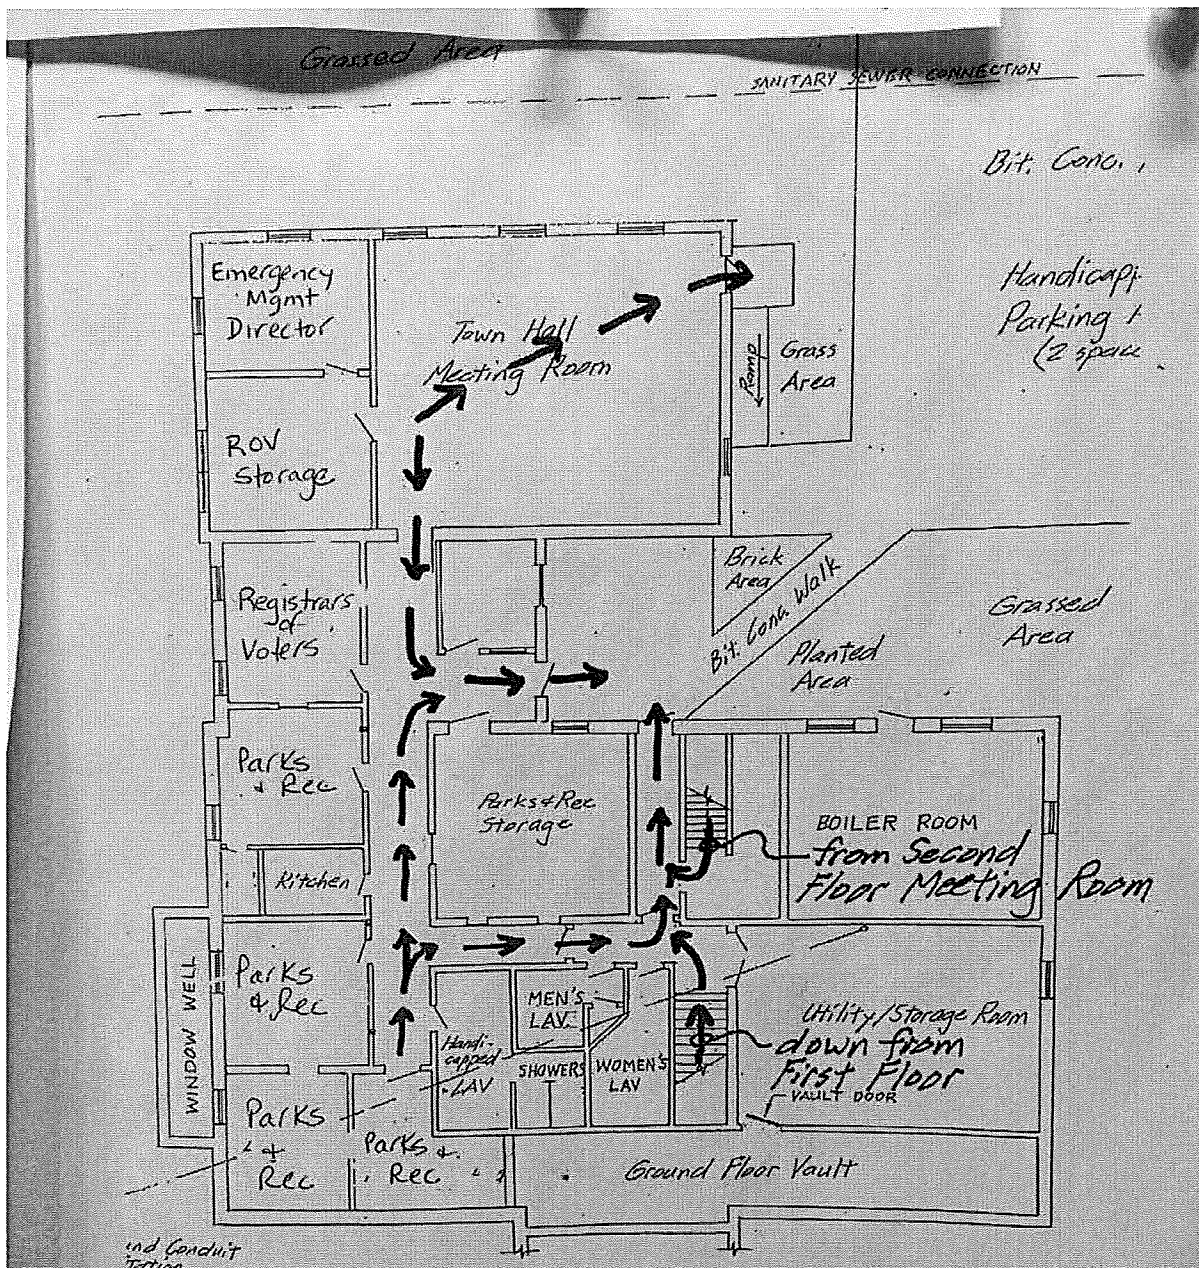 Grassed Area
SANITARY SEWER CONNECTION
Bit. Conc.
Handicap
Parking
(2 space
Emergency
Mgmt
Director
Town Hall
Meeting Room
Ramp
Grass
Area
ROV
Storage
Registrars
of
Voters
Brick
Area
Bit. Conc. Walk
Grassed
Area
Planted
Area
Parks
& Rec
Parks & Rec
Storage
BOILER ROOM
from Second
Floor Meeting Room
Kitchen
WINDOW WELL
Parks
& Rec
MEN'S
LAV.
Handi-
capped
LAV
SHOWERS
WOMEN'S
LAV
Utility/Storage Room
down from
First Floor
VAULT DOOR
Parks
&
Rec
Parks &
Rec
Ground Floor Vault
ind Conduit